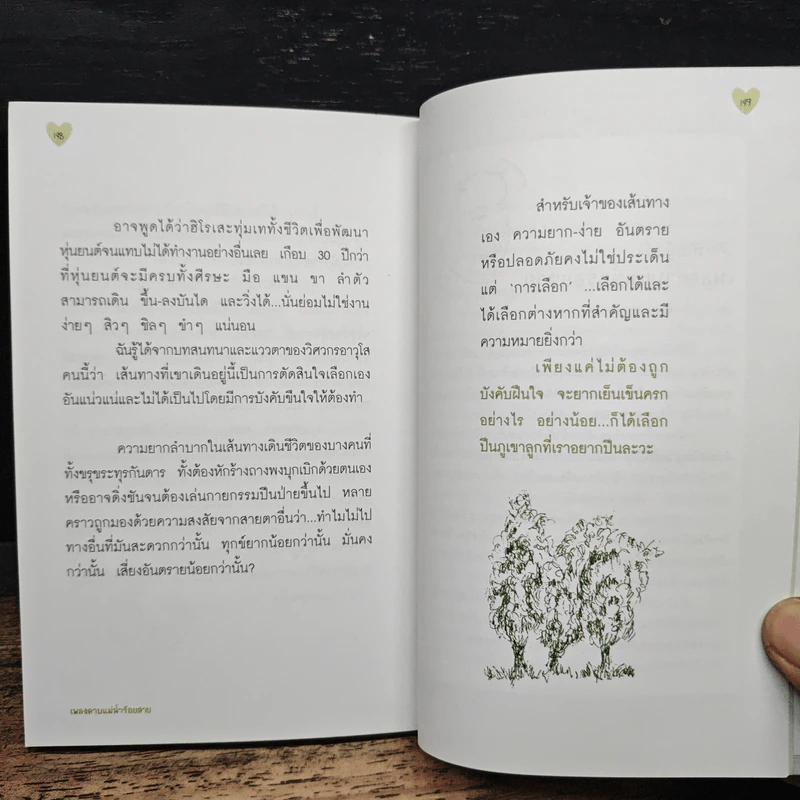 198
อาจพูดได้ว่าฮิโรเสะทุ่มเททั้งชีวิตเพื่อพัฒนา
หุ่นยนต์จนแทบไม่ได้ทำงานอย่างอื่นเลย เกือบ 30 ปีกว่า
ที่หุ่นยนต์จะมีครบทั้งศีรษะ มือ แขน ขา ลำตัว
สามารถเดิน ขึ้น-ลงบันได และวิ่งได้...นั่นย่อมไม่ใช่งาน
ง่ายๆ สิวๆ ชิลๆ ขำๆ แน่นอน
ฉันรู้ได้จากบทสนทนาและแววตาของวิศวกรอาวุโส
คนนี้ว่า เส้นทางที่เขาเดินอยู่นี้เป็นการตัดสินใจเลือกเอง
อันแน่วแน่และไม่ได้เป็นไปโดยมีการบังคับขืนใจให้ต้องทำ
ความยากลำบากในเส้นทางเดินชีวิตของบางคนที่
ทั้งขรุขระทุรกันดาร ทั้งต้องหักร้างถางพงบุกเบิกด้วยตนเอง
หรืออาจดิ่งชันจนต้องเล่นกายกรรมปีนป่ายขึ้นไป หลาย
คราวถูกมองด้วยความสงสัยจากสายตาอื่นว่า...ทำไมไม่ไป
ทางอื่นที่มันสะดวกกว่านั้น ทุกข์ยากน้อยกว่านั้น มั่นคง
กว่านั้น เสี่ยงอันตรายน้อยกว่านั้น?
เพลงดาบแม่น้ำร้อยสาย
199
สำหรับเจ้าของเส้นทาง
เอง ความยาก-ง่าย อันตราย
หรือปลอดภัยคงไม่ใช่ประเด็น
แต่ 'การเลือก' ...เลือกได้และ
ได้เลือกต่างหากที่สำคัญและมี
ความหมายยิ่งกว่า
เพียงแค่ไม่ต้องถูก
บังคับฝืนใจ จะยากเย็นเข็นครก
อย่างไร อย่างน้อย...ก็ได้เลือก
ปีนภูเขาลูกที่เราอยากปีนละวะ